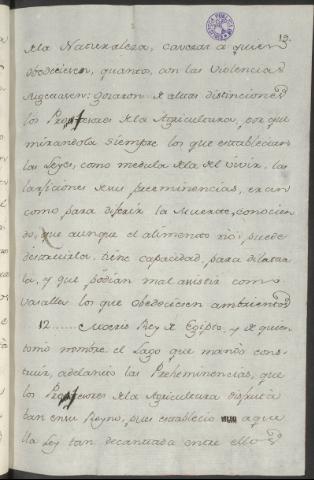 12.
dela Naturaleza, cavezas a quien
obedeciesen, quanto, con las Violencias
Sugetasen: gozaron de altas distinciones
los Profesores dela Agricultura, por que
mirandola siempre los que establecian
las Leyes, como medula del vivir, las
lasiciones de sus preeminencias, eran
como para diferir la Muerte, conocien
do, que aunque el alimento no puede
destruirla, tiene capacidad, para dilatar
la, y que podian mal asistir com
vasallos los que obedeciesen ambrientos
12...... Moeris Rey de Egipto, y de quien
tomó nombre el Lago que mandó cons-
truir, adelantó las Preheminencias, que
los Profesores dela Agricultura disfruta
ban en su Reyno, pues establecio aque
lla Ley tan decantada entre ellos